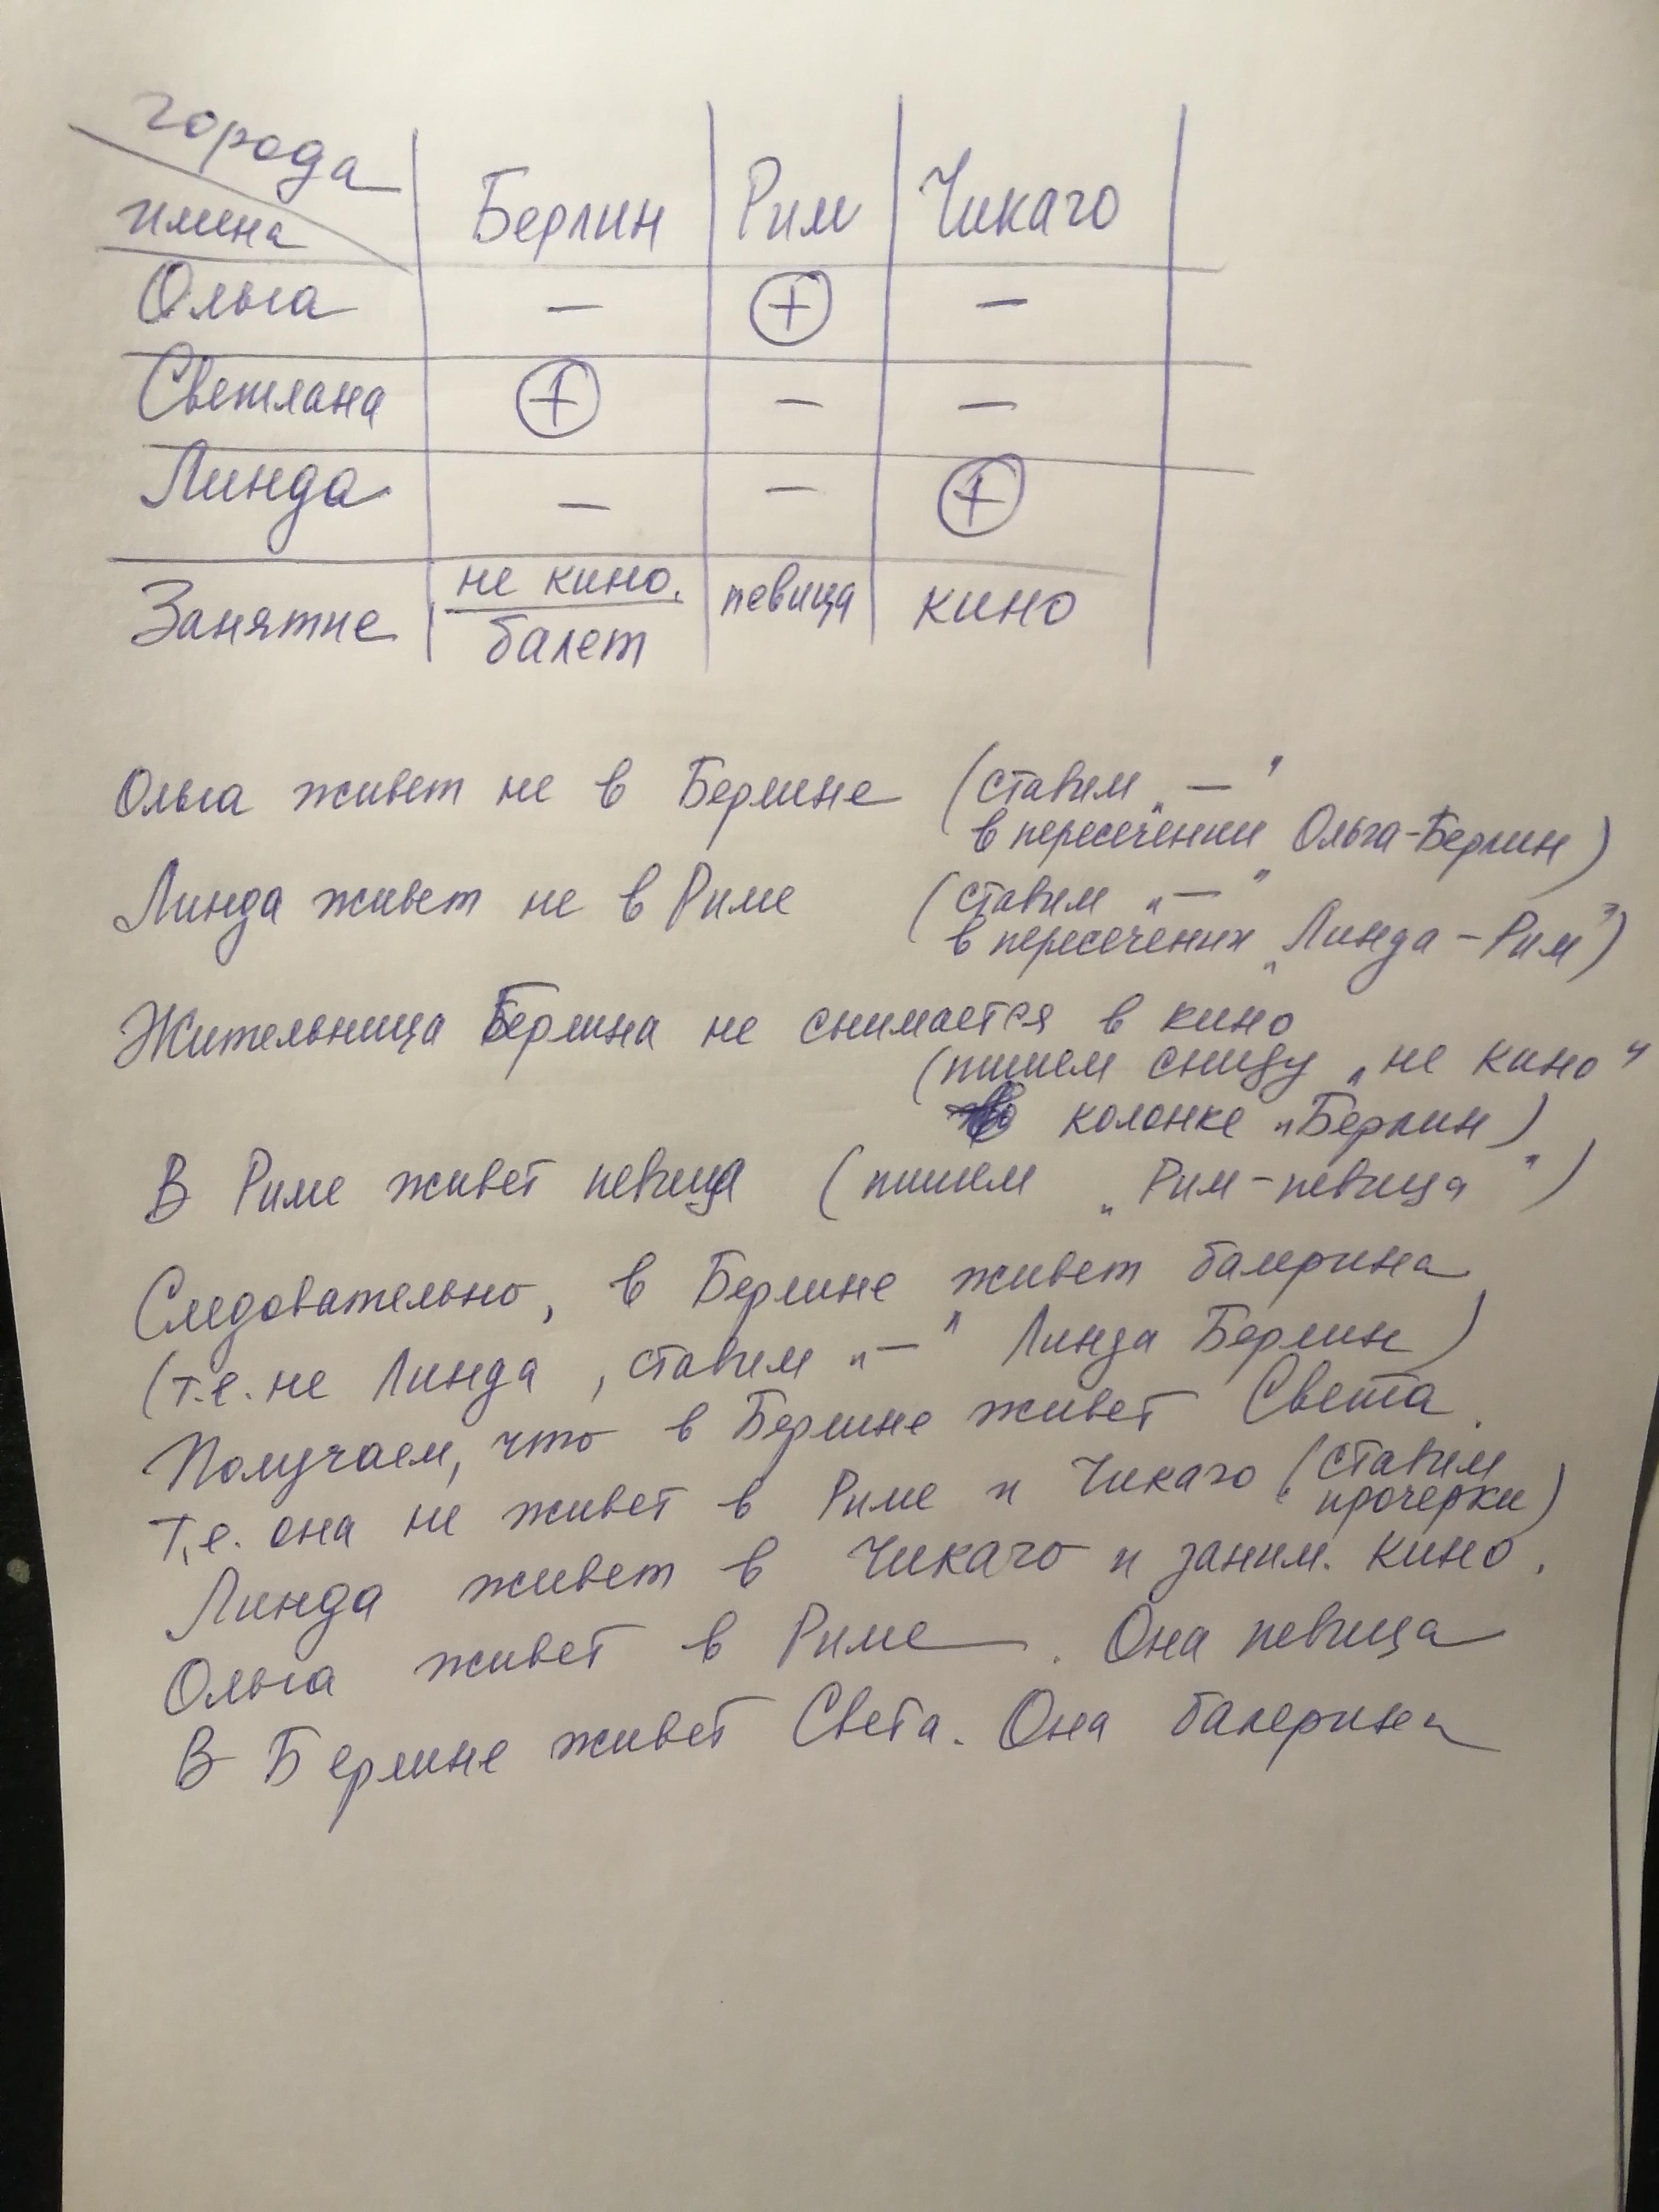 города
имена
Берлин Рим Чикаго
Ольга — + —
Светлана + — —
Линда — — +
Занятие не кино. певица кино
балет
Ольга живет не в Берлине (ставим „—"
в пересечении Ольга-Берлин)
Линда живет не в Риме (ставим „—"
в пересечениях „Линда-Рим")
Жительница Берлина не снимается в кино
(пишем снизу „не кино"
колонке „Берлин)
В Риме живет певица (пишем „Рим-певица")
Следовательно, в Берлине живет балерина
(т.е. не Линда, ставим „—" Линда Берлин)
Получаем, что в Берлине живет Света.
Т.е. она не живет в Риме и Чикаго (ставим
прочерки)
Линда живет в Чикаго и заним. кино.
Ольга живет в Риме. Она певица
В Берлине живет Света. Она балерина